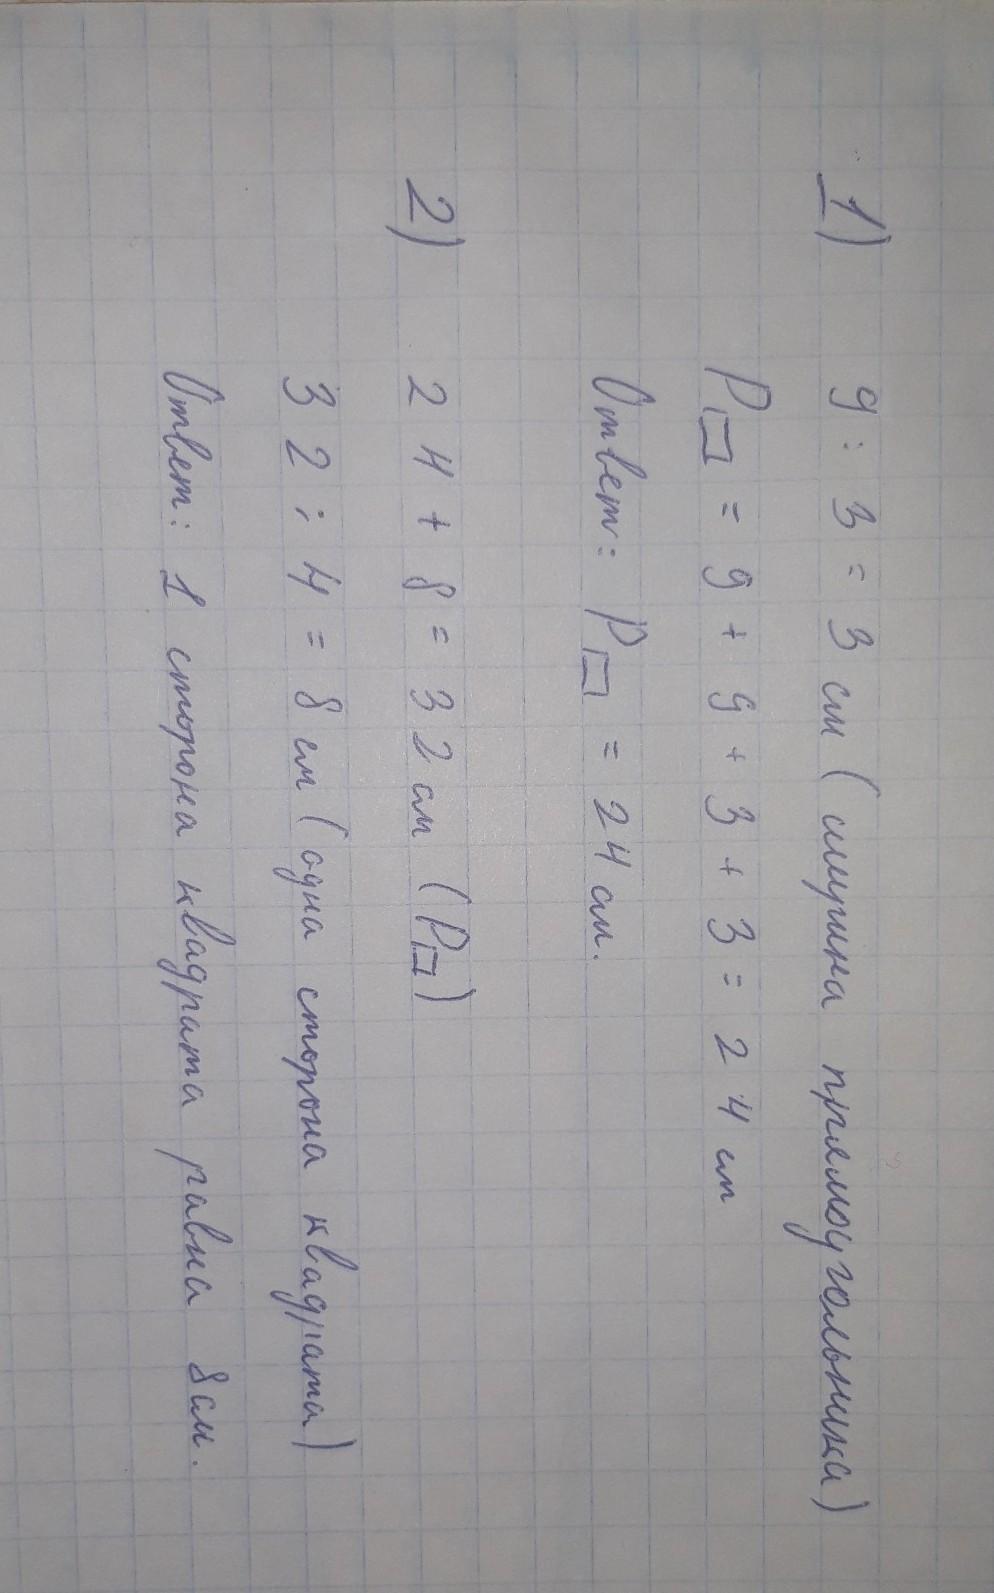 1) 9 : 3 = 3 см (ширина прямоугольника)
P▭ = 9 + 9 + 3 + 3 = 24 см
Ответ: P▭ = 24 см.
2) 24 + 8 = 32 см (P□)
32 : 4 = 8 см (одна сторона квадрата)
Ответ: 1 сторона квадрата равна 8 см.